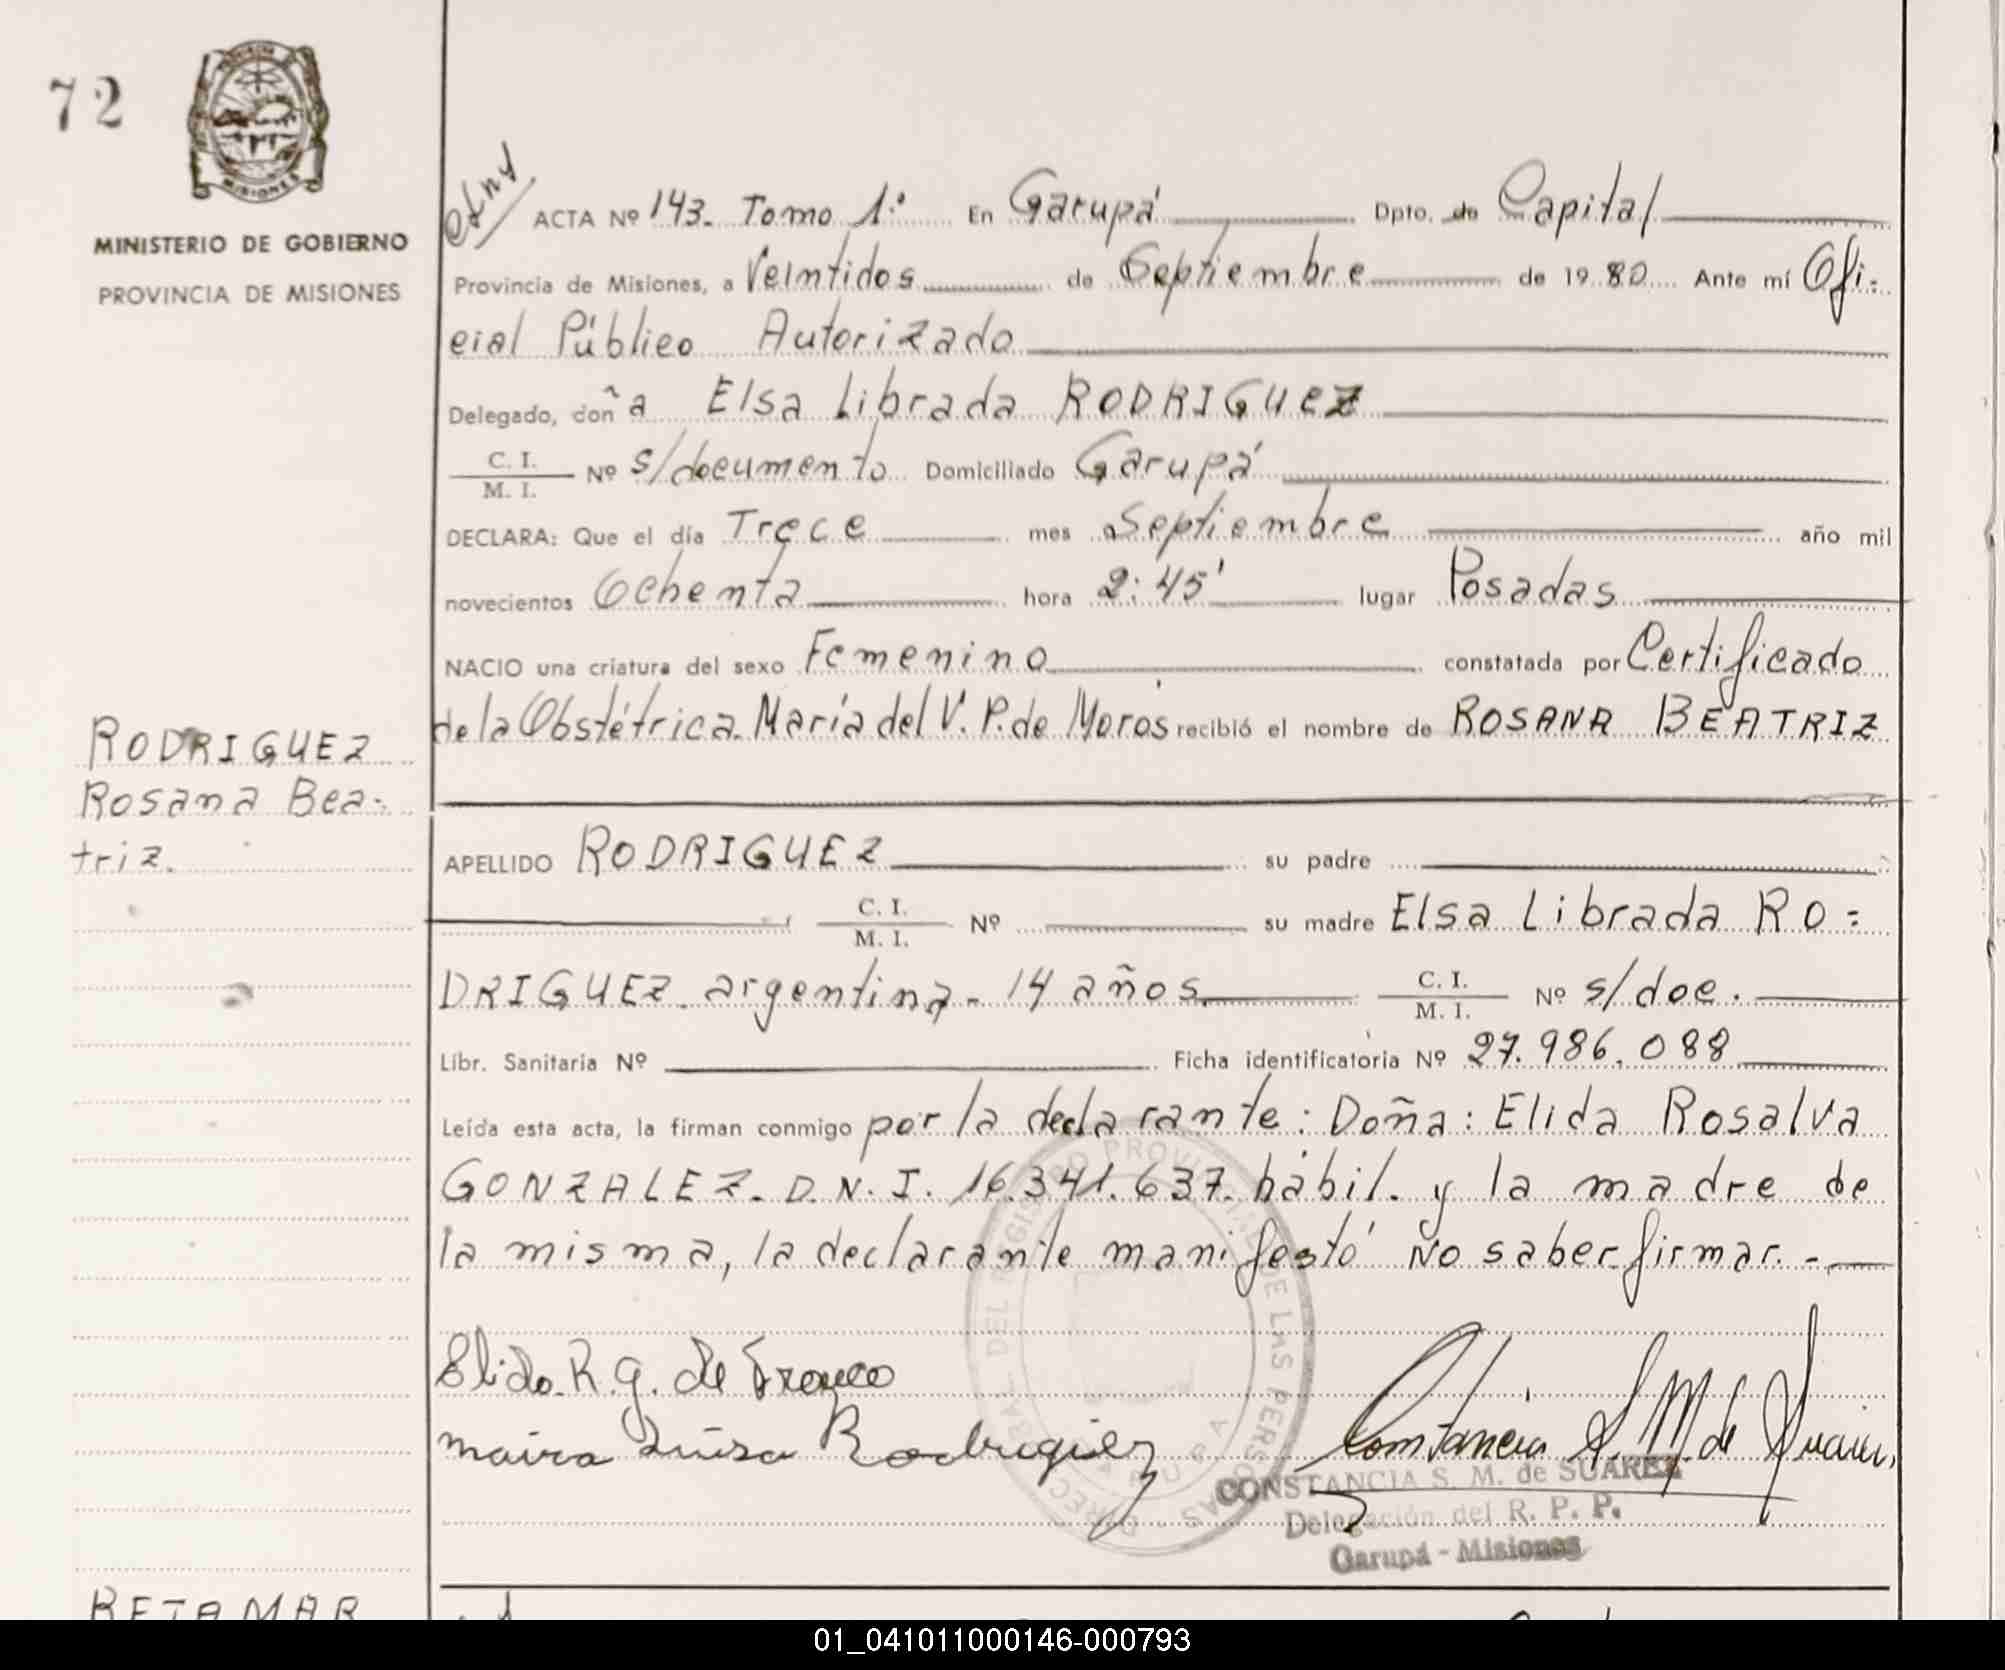 72
MISIONES
MINISTERIO DE GOBIERNO
PROVINCIA DE MISIONES
ACTA Nº 143. Tomo 1º En Garupá Dpto. de Capital
Provincia de Misiones, a Veintidos de Septiembre de 1980 Ante mí Ofi-
cial Público Autorizado
Delegado, doña Elsa Librada RODRIGUEZ
C. I. / M. I. Nº s/documento Domiciliado Garupá
DECLARA: Que el día Trece mes Septiembre año mil
novecientos Ochenta hora 2:45' lugar Posadas
NACIO una criatura del sexo Femenino constatada por Certificado
de la Obstétrica. María del V. P. de Moros recibió el nombre de ROSANA BEATRIZ
RODRIGUEZ
Rosana Bea-
triz.
APELLIDO RODRIGUEZ su padre
C. I. / M. I. Nº su madre Elsa Librada RO=
DRIGUEZ. argentina. 14 años. C. I. / M. I. Nº s/doc.
Libr. Sanitaria Nº Ficha identificatoria Nº 27.986.088
Leída esta acta, la firman conmigo por la declarante: Doña: Elida Rosalva
GONZALEZ. D.N.I. 16.341.637. hábil. y la madre de
la misma, la declarante manifestó no saber firmar.-
Elida R. G. de Franco
maira Luisa Rodriguez
Constancia S. M. de Suarez
CONSTANCIA S. M. de SUAREZ
Delegación del R. P. P.
Garupá - Misiones
DIREC GRAL. DEL REGISTRO PROVINCIAL DE LAS PERSONAS
GARUPA
BETAMAR
01_041011000146-000793